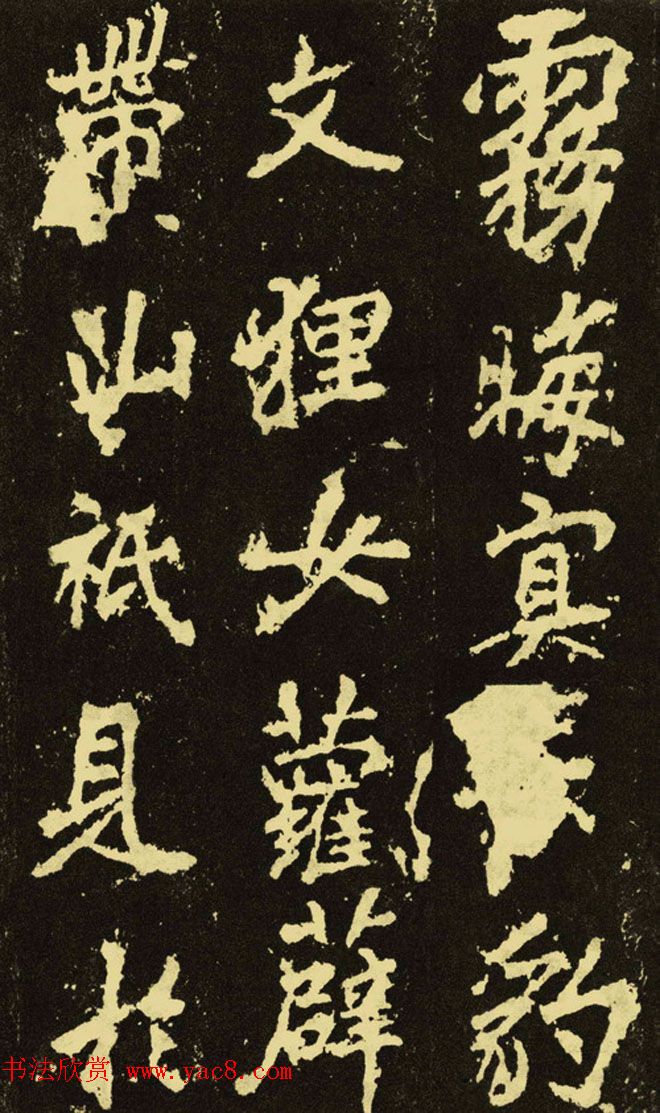 霧晦冥豹
文狸女蘿薜
帶此祇見於
书法欣赏 www.yac8.com